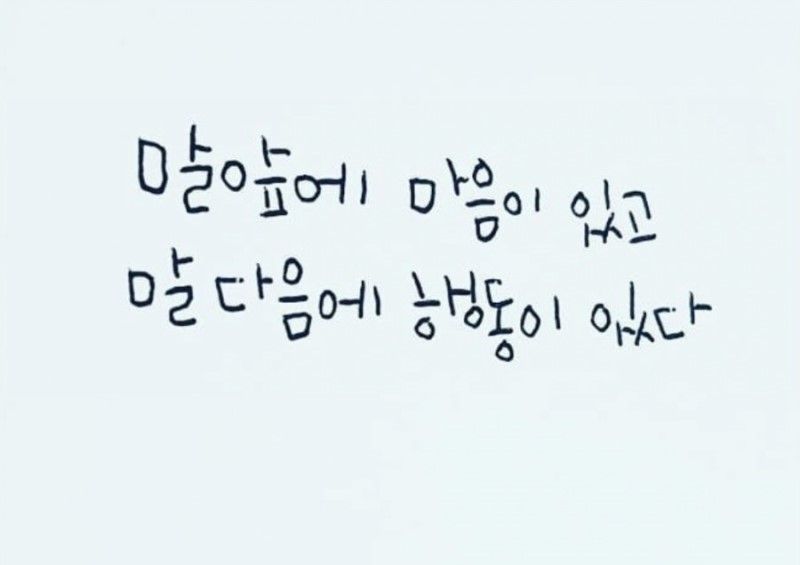 말앞에 마음이 있고
말 다음에 행동이 있다